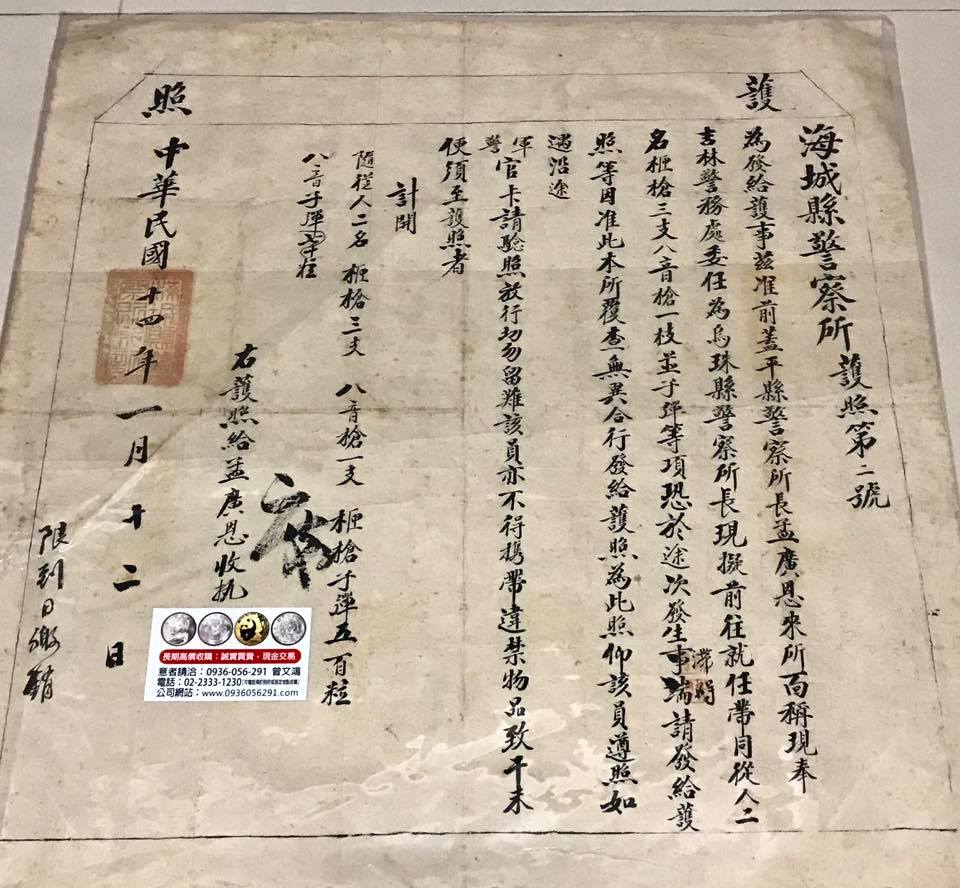 護照
海城縣警察所護照第二號
為發給護事茲准前蓋平縣警察所長孟廣恩來所面稱現奉
吉林警務處委任為烏珠縣警察所長現擬前往就任帶同從人二
名樞槍三支八音槍一枝並子彈等項恐於途次發生事端請發給護
照等因准此本所覆查無異合行發給護照為此照仰該員遵照如
遇沿途
軍警官卡請驗照放行切勿留難該員亦不得攜帶違禁物品致干未
便須至護照者
計開
隨從人二名 樞槍三支 八音槍一支 樞槍子彈五百粒
八音子彈
右護照給孟廣恩收執
中華民國十四年一月十二日
限到日繳銷
長期高價收購：誠實買賣，現金交易
意者請洽：0936-056-291 曾文鴻
電話：02-2333-1230
公司網站：www.0936056291.com